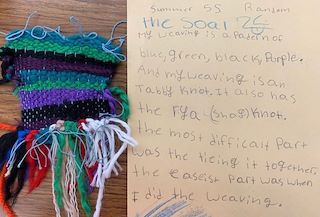 Summer SS Random
the Soar 2C
My weaving is a patern of
blue, green, black, Purple.
And my weaving is an
Tabby Knot. It also has
the rya (shag) Knot.
the most difficalt Part
was the tieing it together.
the easeist Part was when
I did the weaving.